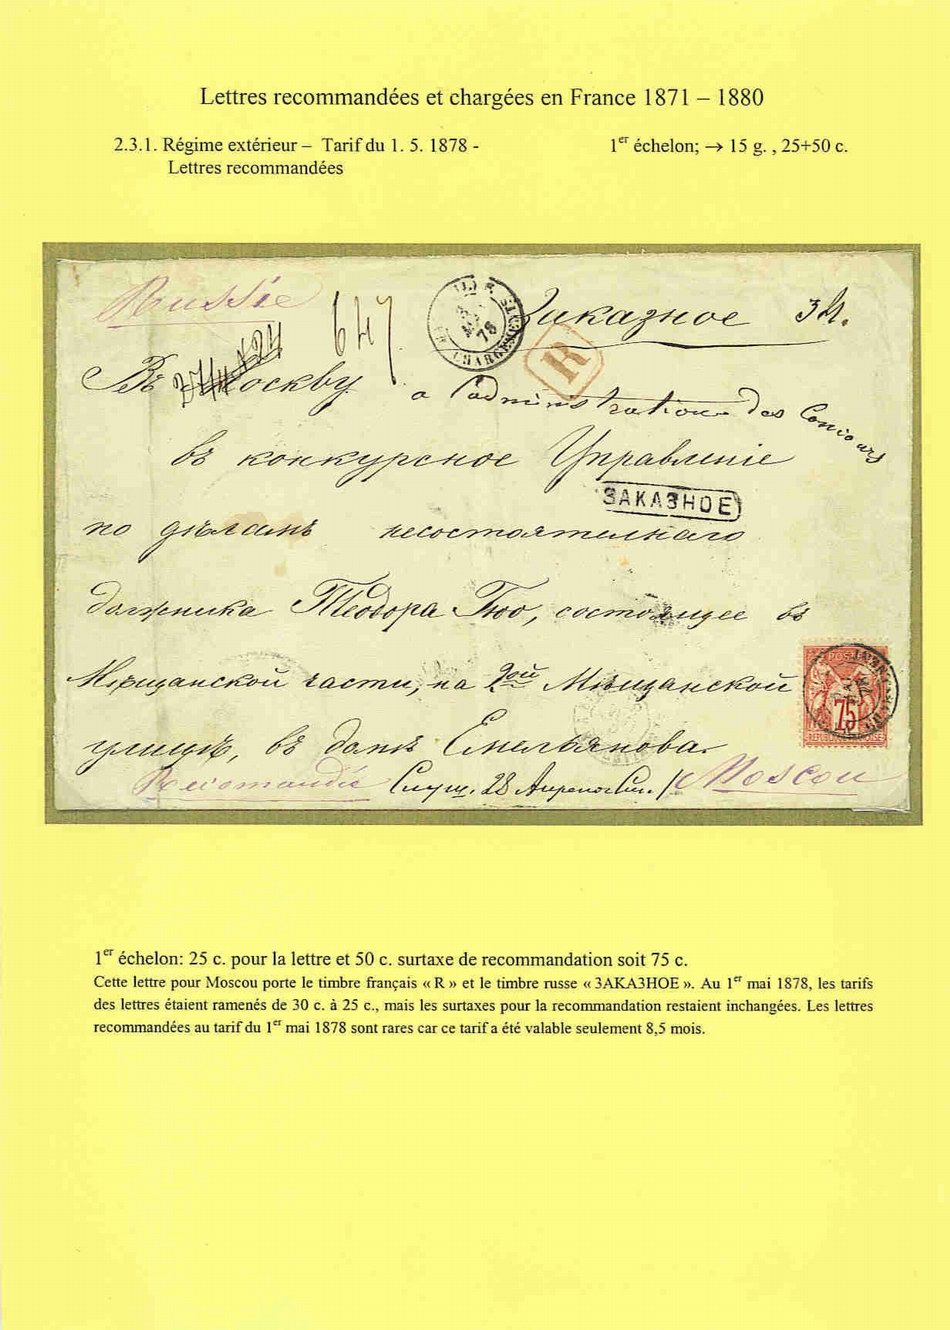 Lettres recommandées et chargées en France 1871 – 1880
2.3.1. Régime extérieur – Tarif du 1. 5. 1878 -
Lettres recommandées
1er échelon; → 15 g. , 25+50 c.
Russie
647
CHARGEMENTS
78
Заказное
R
Въ Москву
a l'administration des Concours
въ конкурсное Управленіе
ЗАКАЗНОЕ
по дѣламъ несостоятельнаго
должника Теодора Гюо, состоящее въ
Мѣщанской части, на 2ой Мѣщанской
75
улицѣ, въ домѣ Емельянова.
Recomandée
28
Moscou
1er échelon: 25 c. pour la lettre et 50 c. surtaxe de recommandation soit 75 c.
Cette lettre pour Moscou porte le timbre français « R » et le timbre russe « ЗАКАЗНОЕ ». Au 1er mai 1878, les tarifs
des lettres étaient ramenés de 30 c. à 25 c., mais les surtaxes pour la recommandation restaient inchangées. Les lettres
recommandées au tarif du 1er mai 1878 sont rares car ce tarif a été valable seulement 8,5 mois.